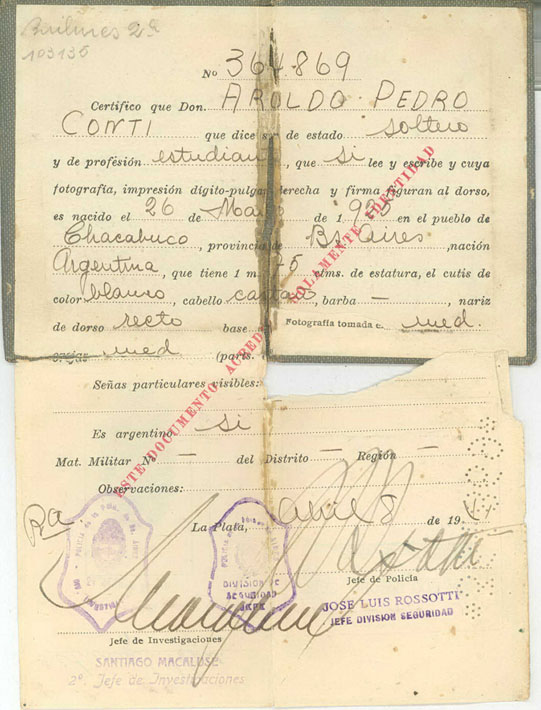 103135
Nº 364.869
Certifico que Don. AROLDO PEDRO
CONTI que dice ser de estado soltero
y de profesión estudiante, que si lee y escribe y cuya
fotografía, impresión dígito-pulgar derecha y firma figuran al dorso,
es nacido el 26 de de 19 en el pueblo de
Chacabuco, provincia de Bs. Aires, nación
Argentina, que tiene 1 m. 75 ctms. de estatura, el cutis de
color blanco, cabello castaño, barba — , nariz
de dorso recto base
Fotografía tomada c. med.
med (parts.
Señas particulares visibles:
ESTE DOCUMENTO ACREDITA SOLAMENTE IDENTIDAD
Es argentino si
Mat. Militar Nº — del Distrito — Región —
Observaciones:
La Plata, Abril 8 de 19
DIVISION DE
SEGURIDAD
JEFE
Jefe de Policía
JOSE LUIS ROSSOTTI
JEFE DIVISION SEGURIDAD
Jefe de Investigaciones
SANTIAGO MACALUSE
2º. Jefe de Investigaciones